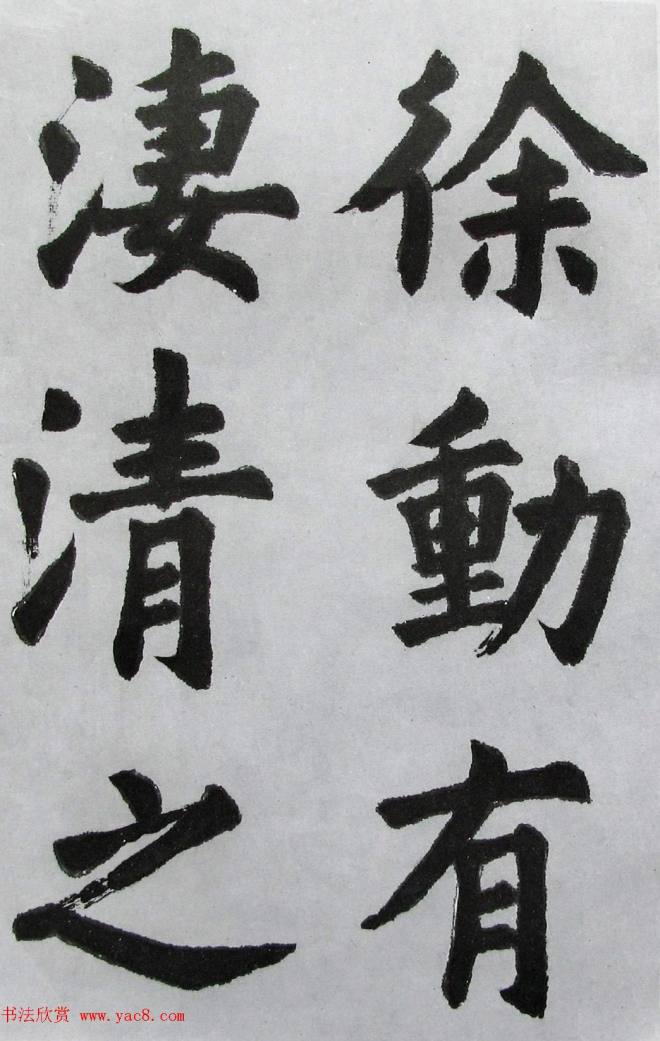 徐動有
淒清之
书法欣赏 www.yac8.com